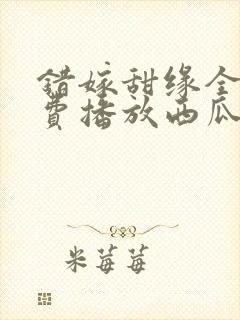 错嫁甜缘全
费播放西瓜
米莓莓